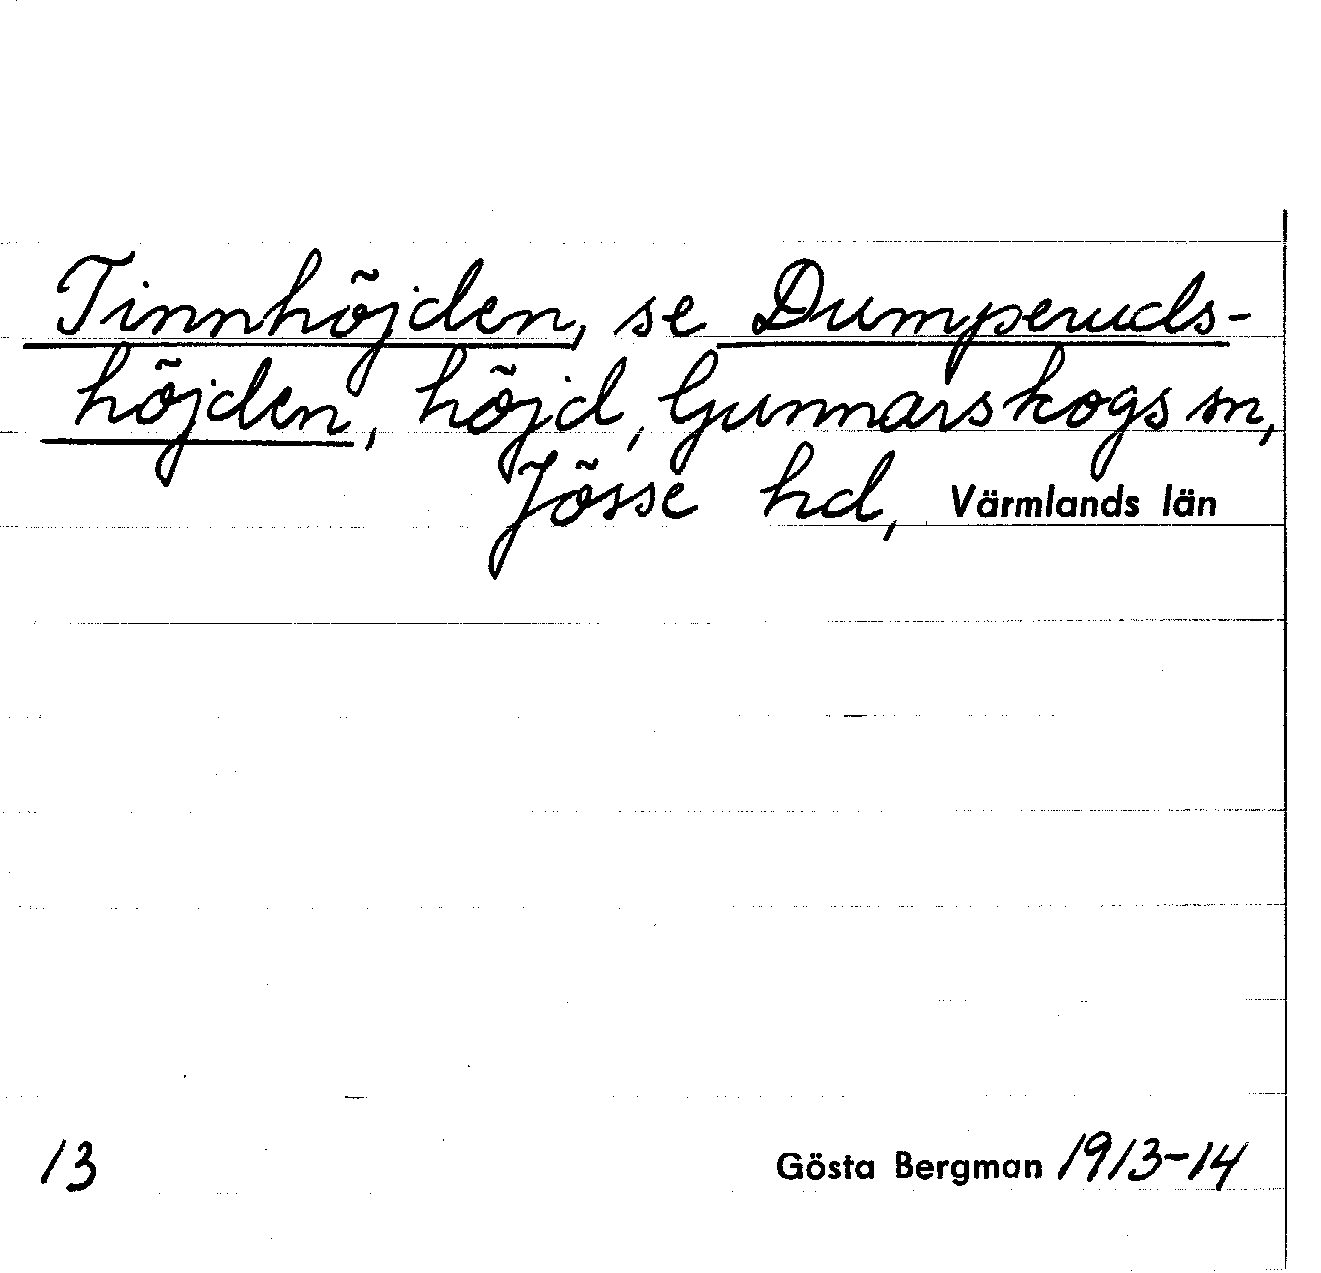 Tinnhöjden, se Dumperuds-
höjden, höjd, Gunnarskogs sn,
Jösse hd, Värmlands län
13 Gösta Bergman 1913-14